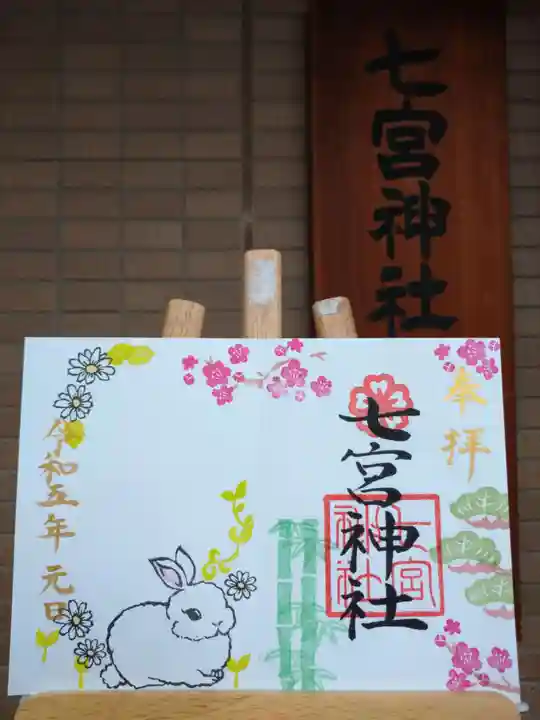 七宮神社
奉拝
七宮神社
七宮
神社
令和五年 元日